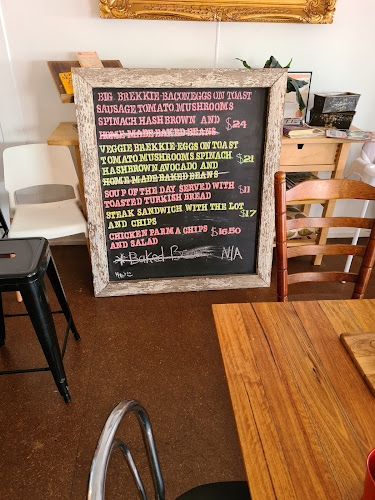 BIG BREKKIE-BACON EGGS ON TOAST
SAUSAGE TOMATO MUSHROOMS
SPINACH HASH BROWN AND $24
HOME MADE BAKED BEANS
VEGGIE BREKKIE-EGGS ON TOAST
TOMATO MUSHROOMS SPINACH $21
HASHBROWN AVOCADO AND
HOME MADE BAKED BEANS
SOUP OF THE DAY SERVED WITH $11
TOASTED TURKISH BREAD
STEAK SANDWICH WITH THE LOT $17
AND CHIPS
CHICKEN PARMA CHIPS $16.50
AND SALAD
*Baked Beans N/A